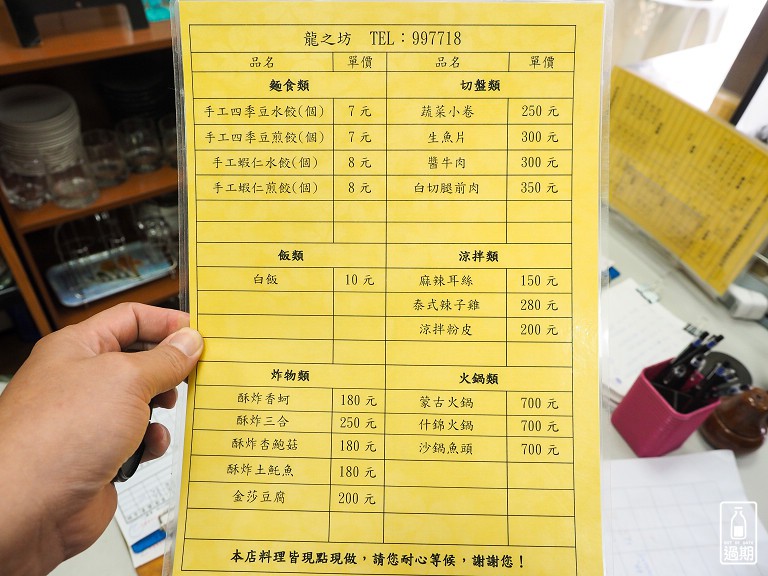 龍之坊 TEL：997718
品名 單價 品名 單價
麵食類 切盤類
手工四季豆水餃(個) 7 元 蔬菜小卷 250 元
手工四季豆煎餃(個) 7 元 生魚片 300 元
手工蝦仁水餃(個) 8 元 醬牛肉 300 元
手工蝦仁煎餃(個) 8 元 白切腿前肉 350 元
飯類 涼拌類
白飯 10 元 麻辣耳絲 150 元
泰式辣子雞 280 元
涼拌粉皮 200 元
炸物類 火鍋類
酥炸香蚵 180 元 蒙古火鍋 700 元
酥炸三合 250 元 什錦火鍋 700 元
酥炸杏鮑菇 180 元 沙鍋魚頭 700 元
酥炸土魠魚 180 元
金莎豆腐 200 元
本店料理皆現點現做，請您耐心等候，謝謝您！
過期